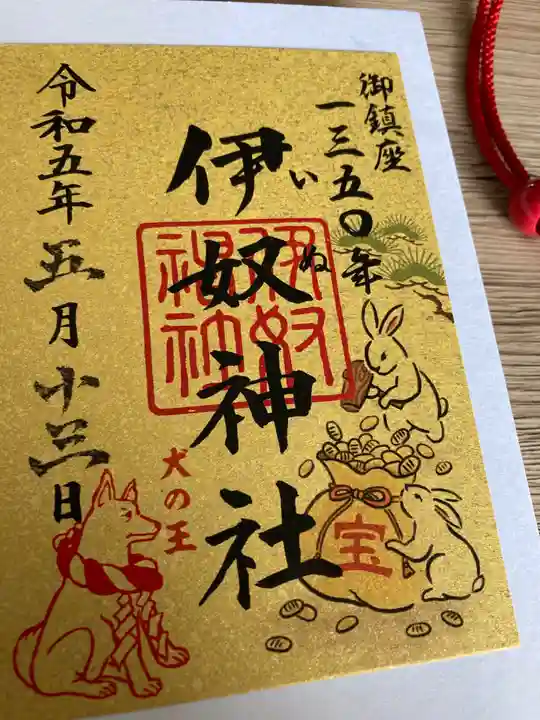 御鎮座
一三五〇年
伊奴神社
いぬ
伊奴神社
令和五年五月十三日
犬の王
宝